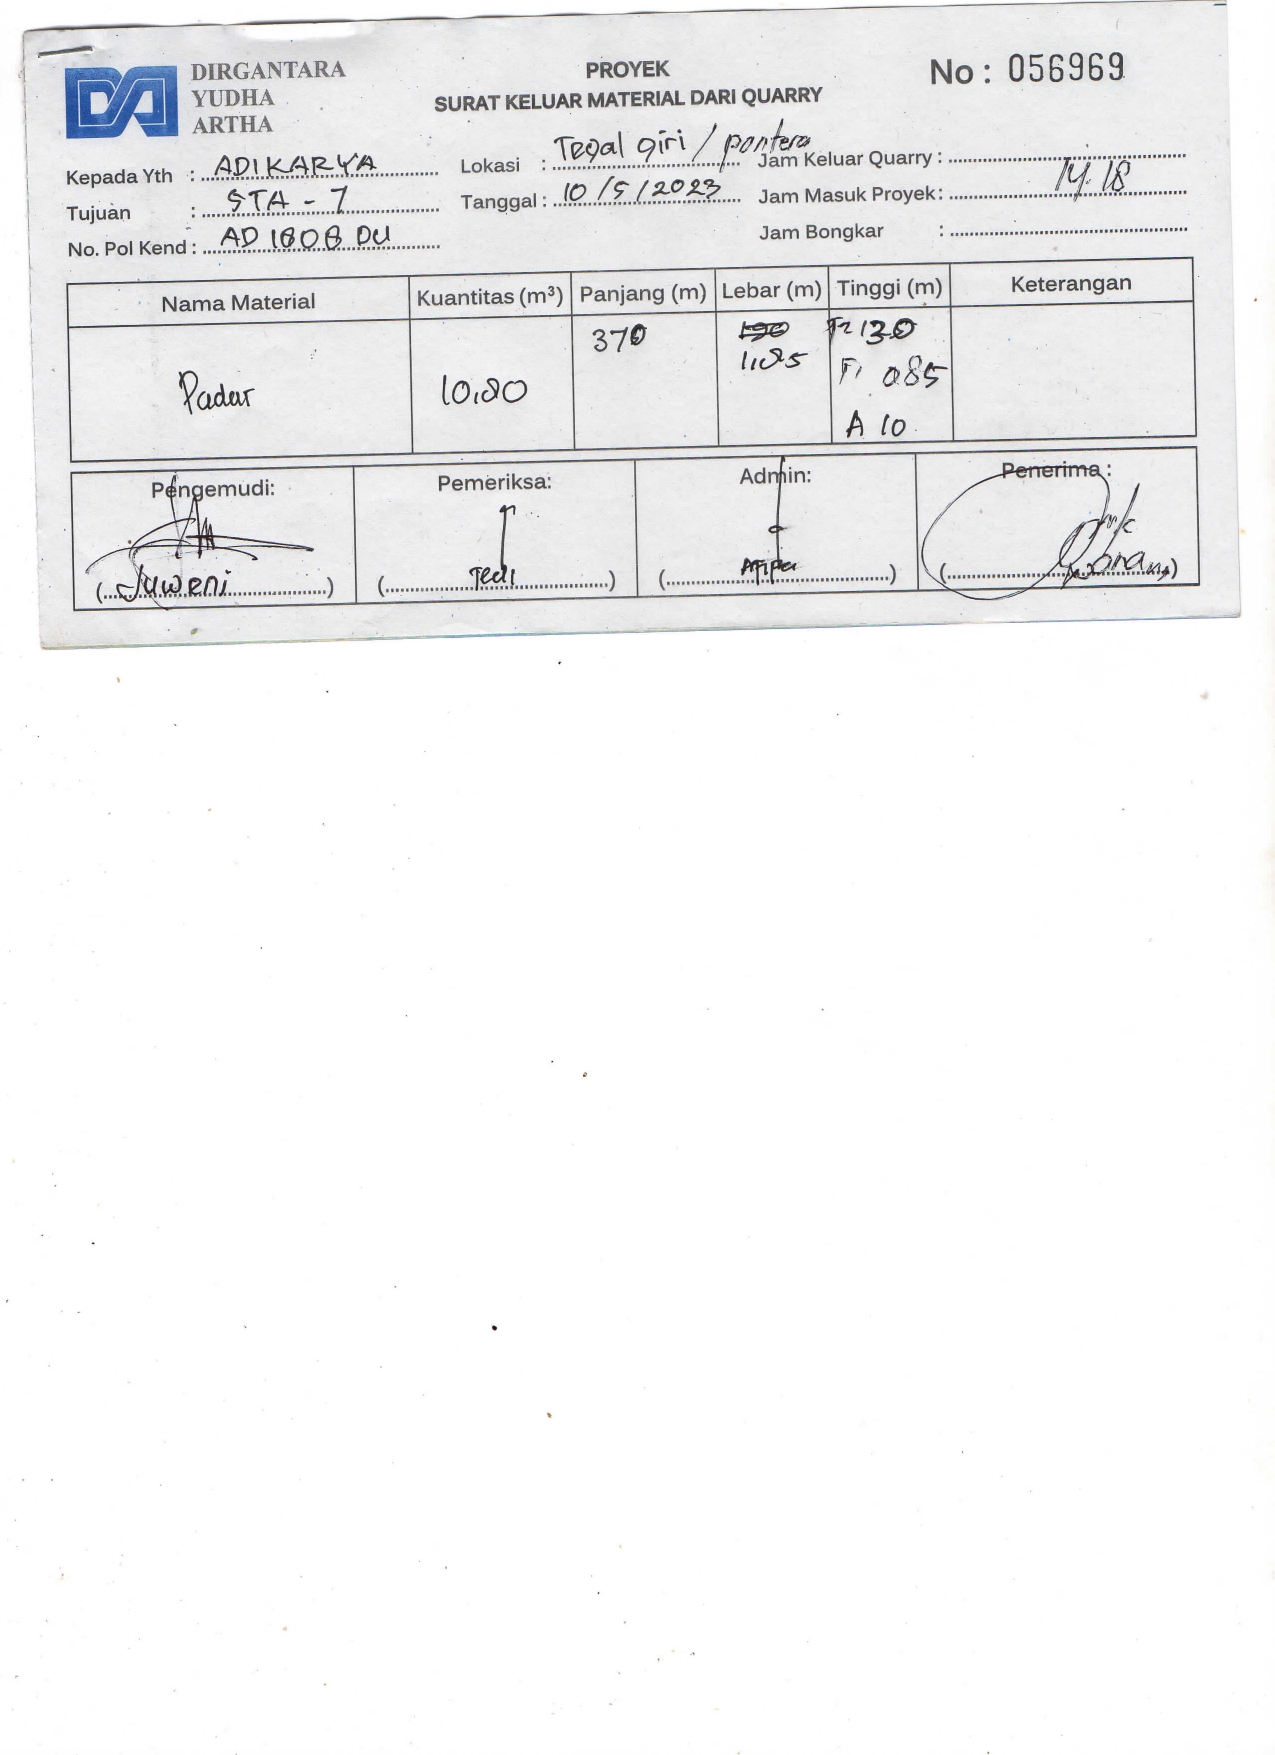 DIRGANTARA
YUDHA
ARTHA
PROYEK
SURAT KELUAR MATERIAL DARI QUARRY
No : 056969
Kepada Yth : ADIKARYA
Tujuan : STA - 7
No. Pol Kend : AD 1808 DU
Lokasi : Tegal giri / pontera
Tanggal : 10 / 5 / 2023
Jam Keluar Quarry :
Jam Masuk Proyek : 14.18
Jam Bongkar :
Nama Material Kuantitas (m³) Panjang (m) Lebar (m) Tinggi (m) Keterangan
370 T2 130
1,85 T1 085
10,80
A 10
Pengemudi: Pemeriksa: Admin: Penerima :
(Juweni) (Tedi) (Afifa)